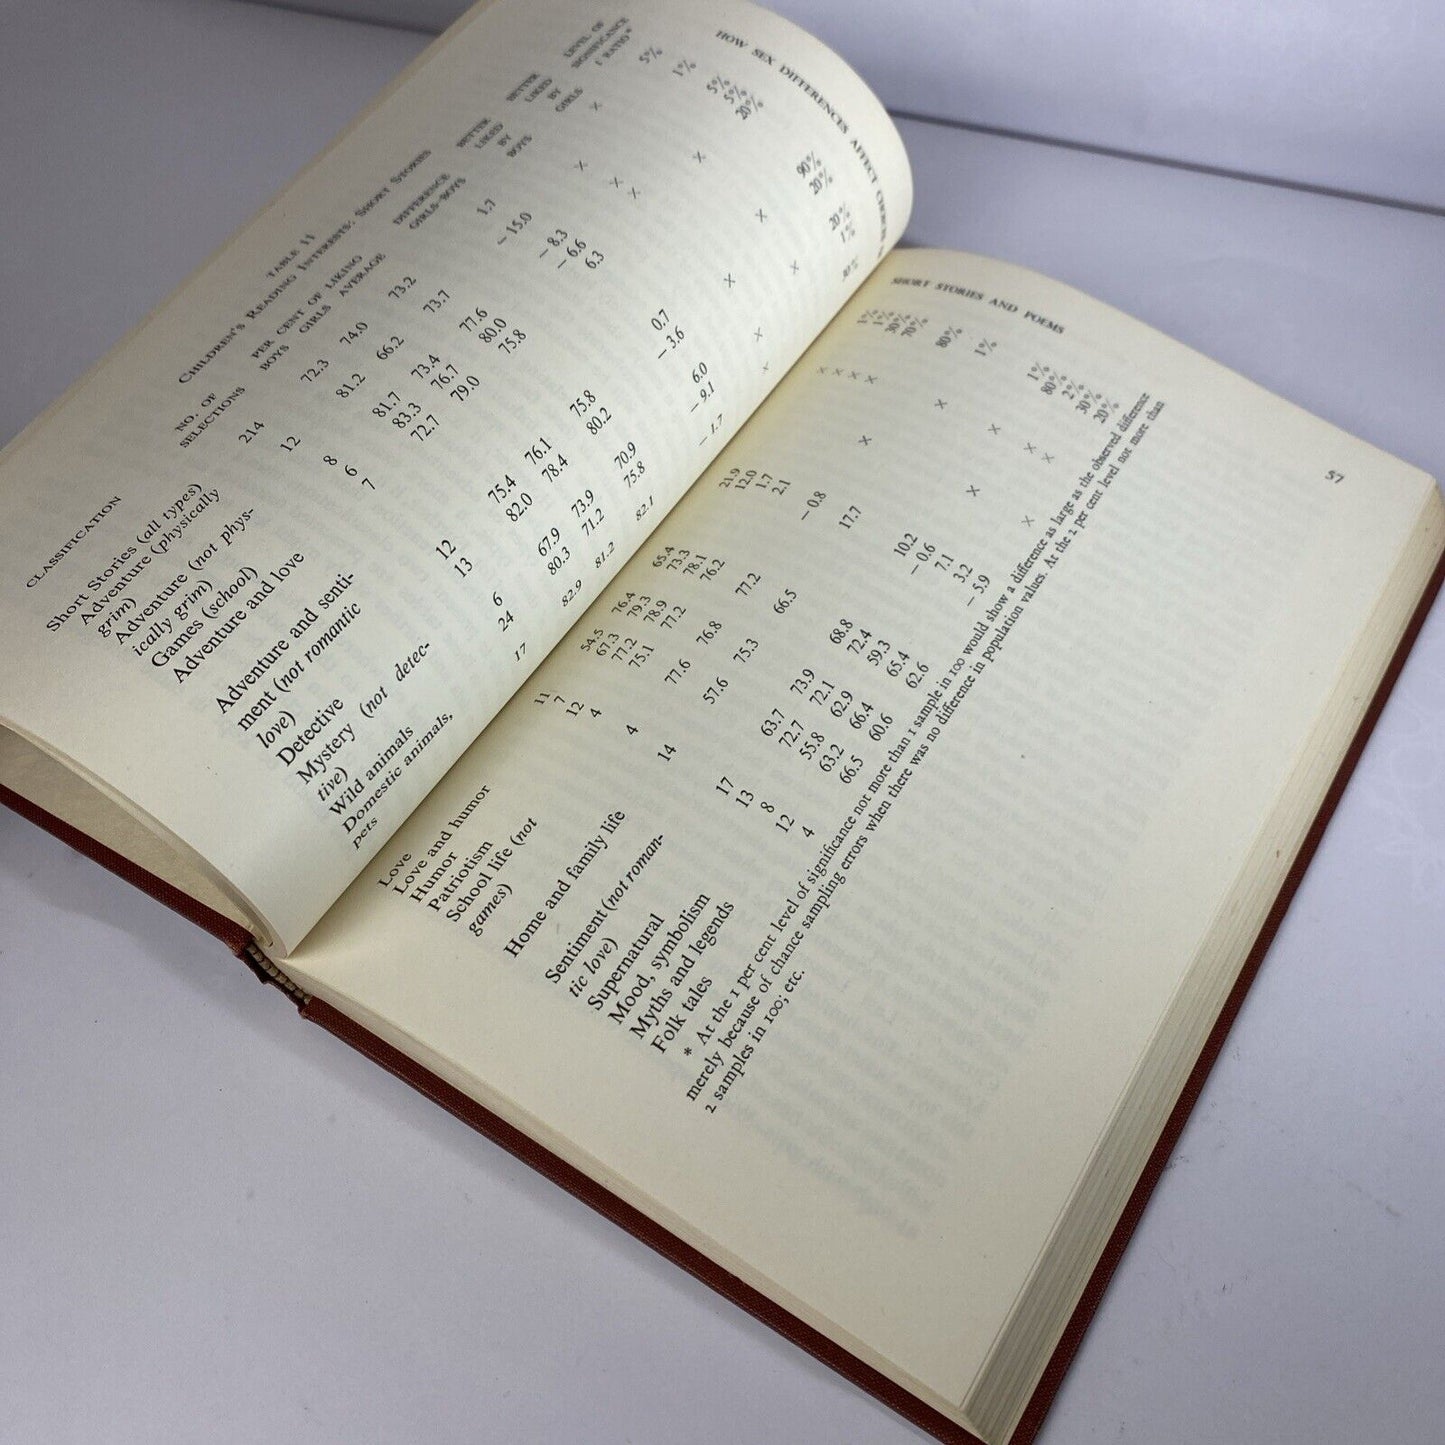 HOW SEX DIFFERENCES AFFECT
TABLE 11
CHILDREN'S READING INTERESTS: SHORT STORIES
CLASSIFICATION NO. OF SELECTIONS PER CENT OF LIKING BOYS GIRLS AVERAGE DIFFERENCE GIRLS-BOYS BETTER LIKED BY BOYS BETTER LIKED BY GIRLS LEVEL OF SIGNIFICANCE t RATIO*
Short Stories (all types) 214 72.3 74.0 73.2 1.7 x 5%
Adventure (physically
grim) 12 81.2 66.2 73.7 – 15.0 x 1%
Adventure (not phys-
ically grim) 8 81.7 73.4 77.6 – 8.3 x 5%
Games (school) 6 83.3 76.7 80.0 – 6.6 x 5%
Adventure and love 7 72.7 79.0 75.8 6.3 x 20%
Adventure and senti-
ment (not romantic
love) 12 75.4 76.1 75.8 0.7 x 90%
Detective 13 82.0 78.4 80.2 – 3.6 x 20%
Mystery (not detec-
tive) 6 67.9 73.9 70.9 6.0 x 20%
Wild animals 24 80.3 71.2 75.8 – 9.1 x 1%
Domestic animals,
pets 17 82.9 81.2 82.1 – 1.7 x
SHORT STORIES AND POEMS 57
Love 11 54.5 76.4 65.4 21.9 x 1%
Love and humor 7 67.3 79.3 73.3 12.0 x 1%
Humor 12 77.2 78.9 78.1 1.7 x 30%
Patriotism 4 75.1 77.2 76.2 2.1 x 70%
School life (not
games) 4 77.6 76.8 77.2 – 0.8 x 80%
Home and family life 14 57.6 75.3 66.5 17.7 x 1%
Sentiment (not roman-
tic love) 17 63.7 73.9 68.8 10.2 x 1%
Supernatural 13 72.7 72.1 72.4 – 0.6 x 80%
Mood, symbolism 8 55.8 62.9 59.3 7.1 x 2%
Myths and legends 12 63.2 66.4 65.4 3.2 x 30%
Folk tales 4 66.5 60.6 62.6 – 5.9 x 20%
* At the 1 per cent level of significance not more than 1 sample in 100 would show a difference as large as the observed difference
merely because of chance sampling errors when there was no difference in population values. At the 2 per cent level not more than
2 samples in 100; etc.